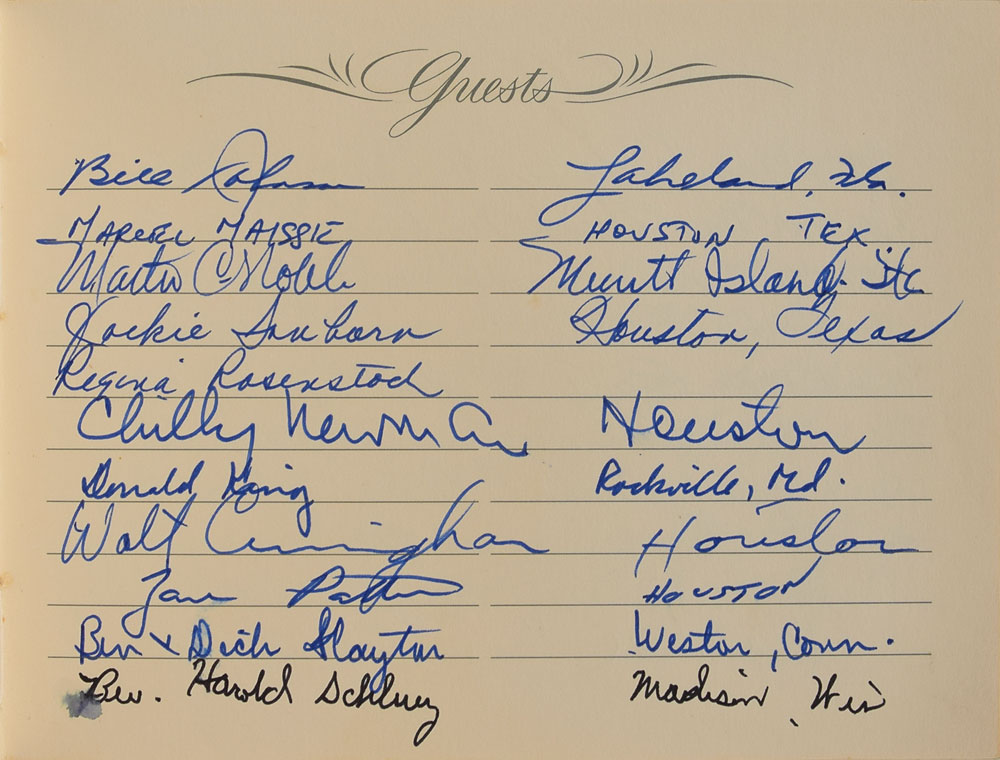 Guests
Bill Johnson Lakeland, Fla.
MARCEL MAISSIE HOUSTON TEX.
Martin Merritt Island.
Jackie Sanborn Houston, Texas
Regina Rosenstock
Chilly Newman Houston
Donald King Rockville, Md.
Walt Cunningham Houston
HOUSTON
Ben + Dick Slayton Weston, Conn.
Rev. Harold Madison, Wis